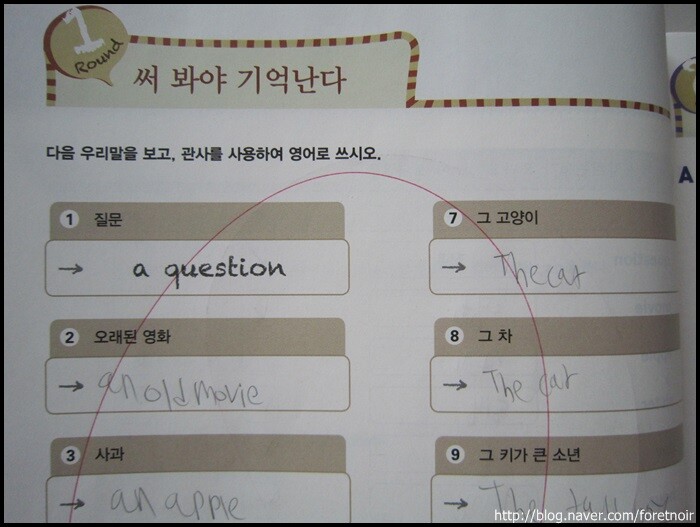 1
Round
써 봐야 기억난다
다음 우리말을 보고, 관사를 사용하여 영어로 쓰시오.
1 질문
→ a question
2 오래된 영화
→ an old movie
3 사과
→ an apple
7 그 고양이
→ The cat
8 그 차
→ The car
9 그 키가 큰 소년
→ The tall
A
http://blog.naver.com/foretnoir